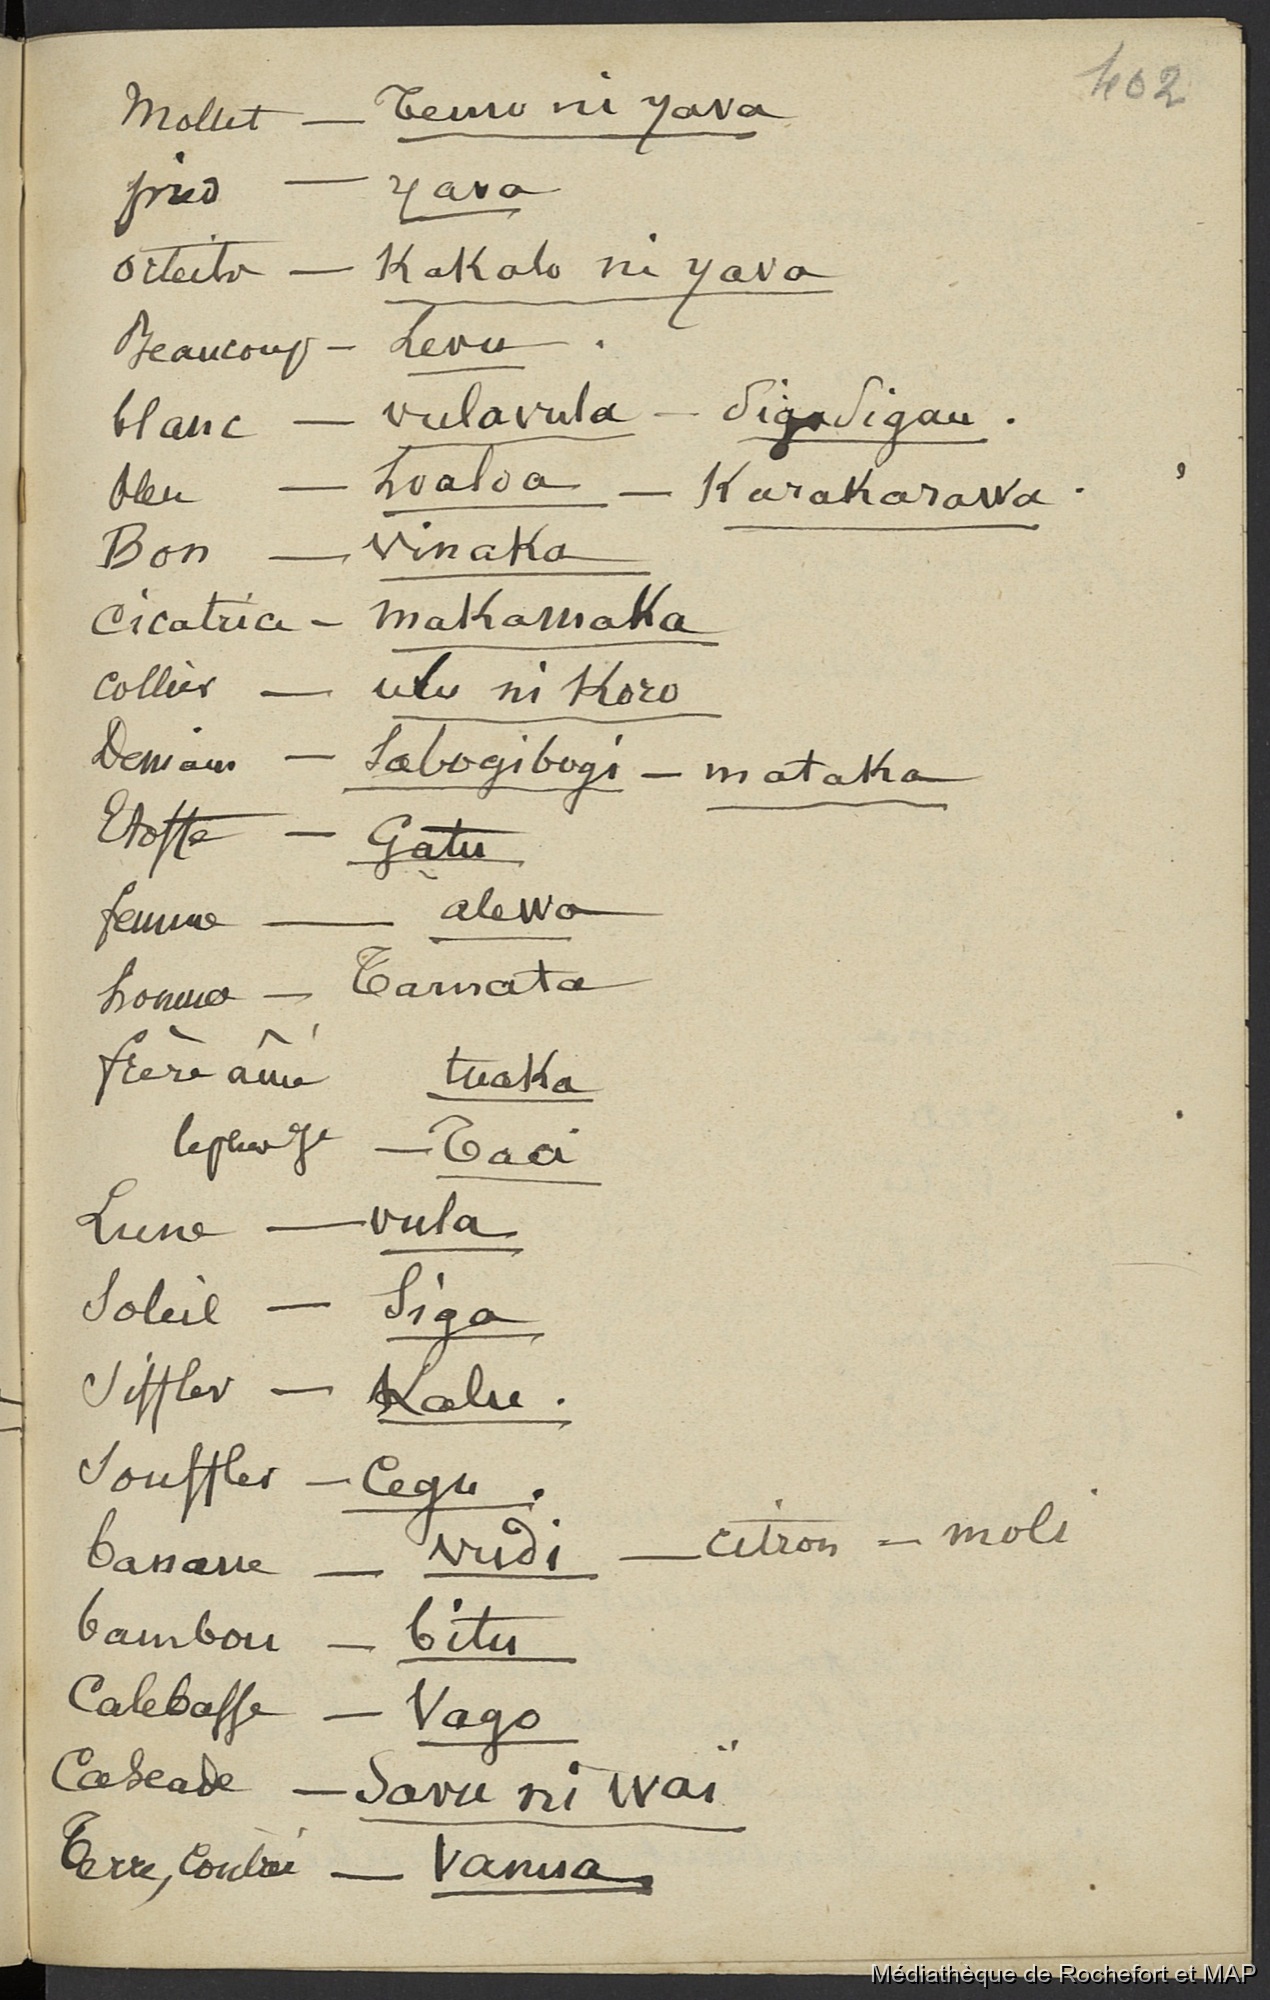 402
Mollet — Temo ni yava
pied — yava
orteils — Kakalo ni yava
Beaucoup — Levu .
blanc — vulavula — SigaSigau .
bleu — Loaloa — Karakarawa .
Bon — vinaka
Cicatrice — makamaka
Collier — ulu ni Koro
Demain — Sabogibogi — mataka
Etoffe — Gatu
femme — alewa
homme — Tamata
frère aîné tuaka
le plus je — Taci
Lune — vula
Soleil — Siga
Siffler — Kalu .
Souffler — Cegu .
banane — vudi — citron — moli
bambou — bitu
Calebasse — Vago
Cascade — Savu ni waï
Terre, contrée — Vanua
Médiathèque de Rochefort et MAP